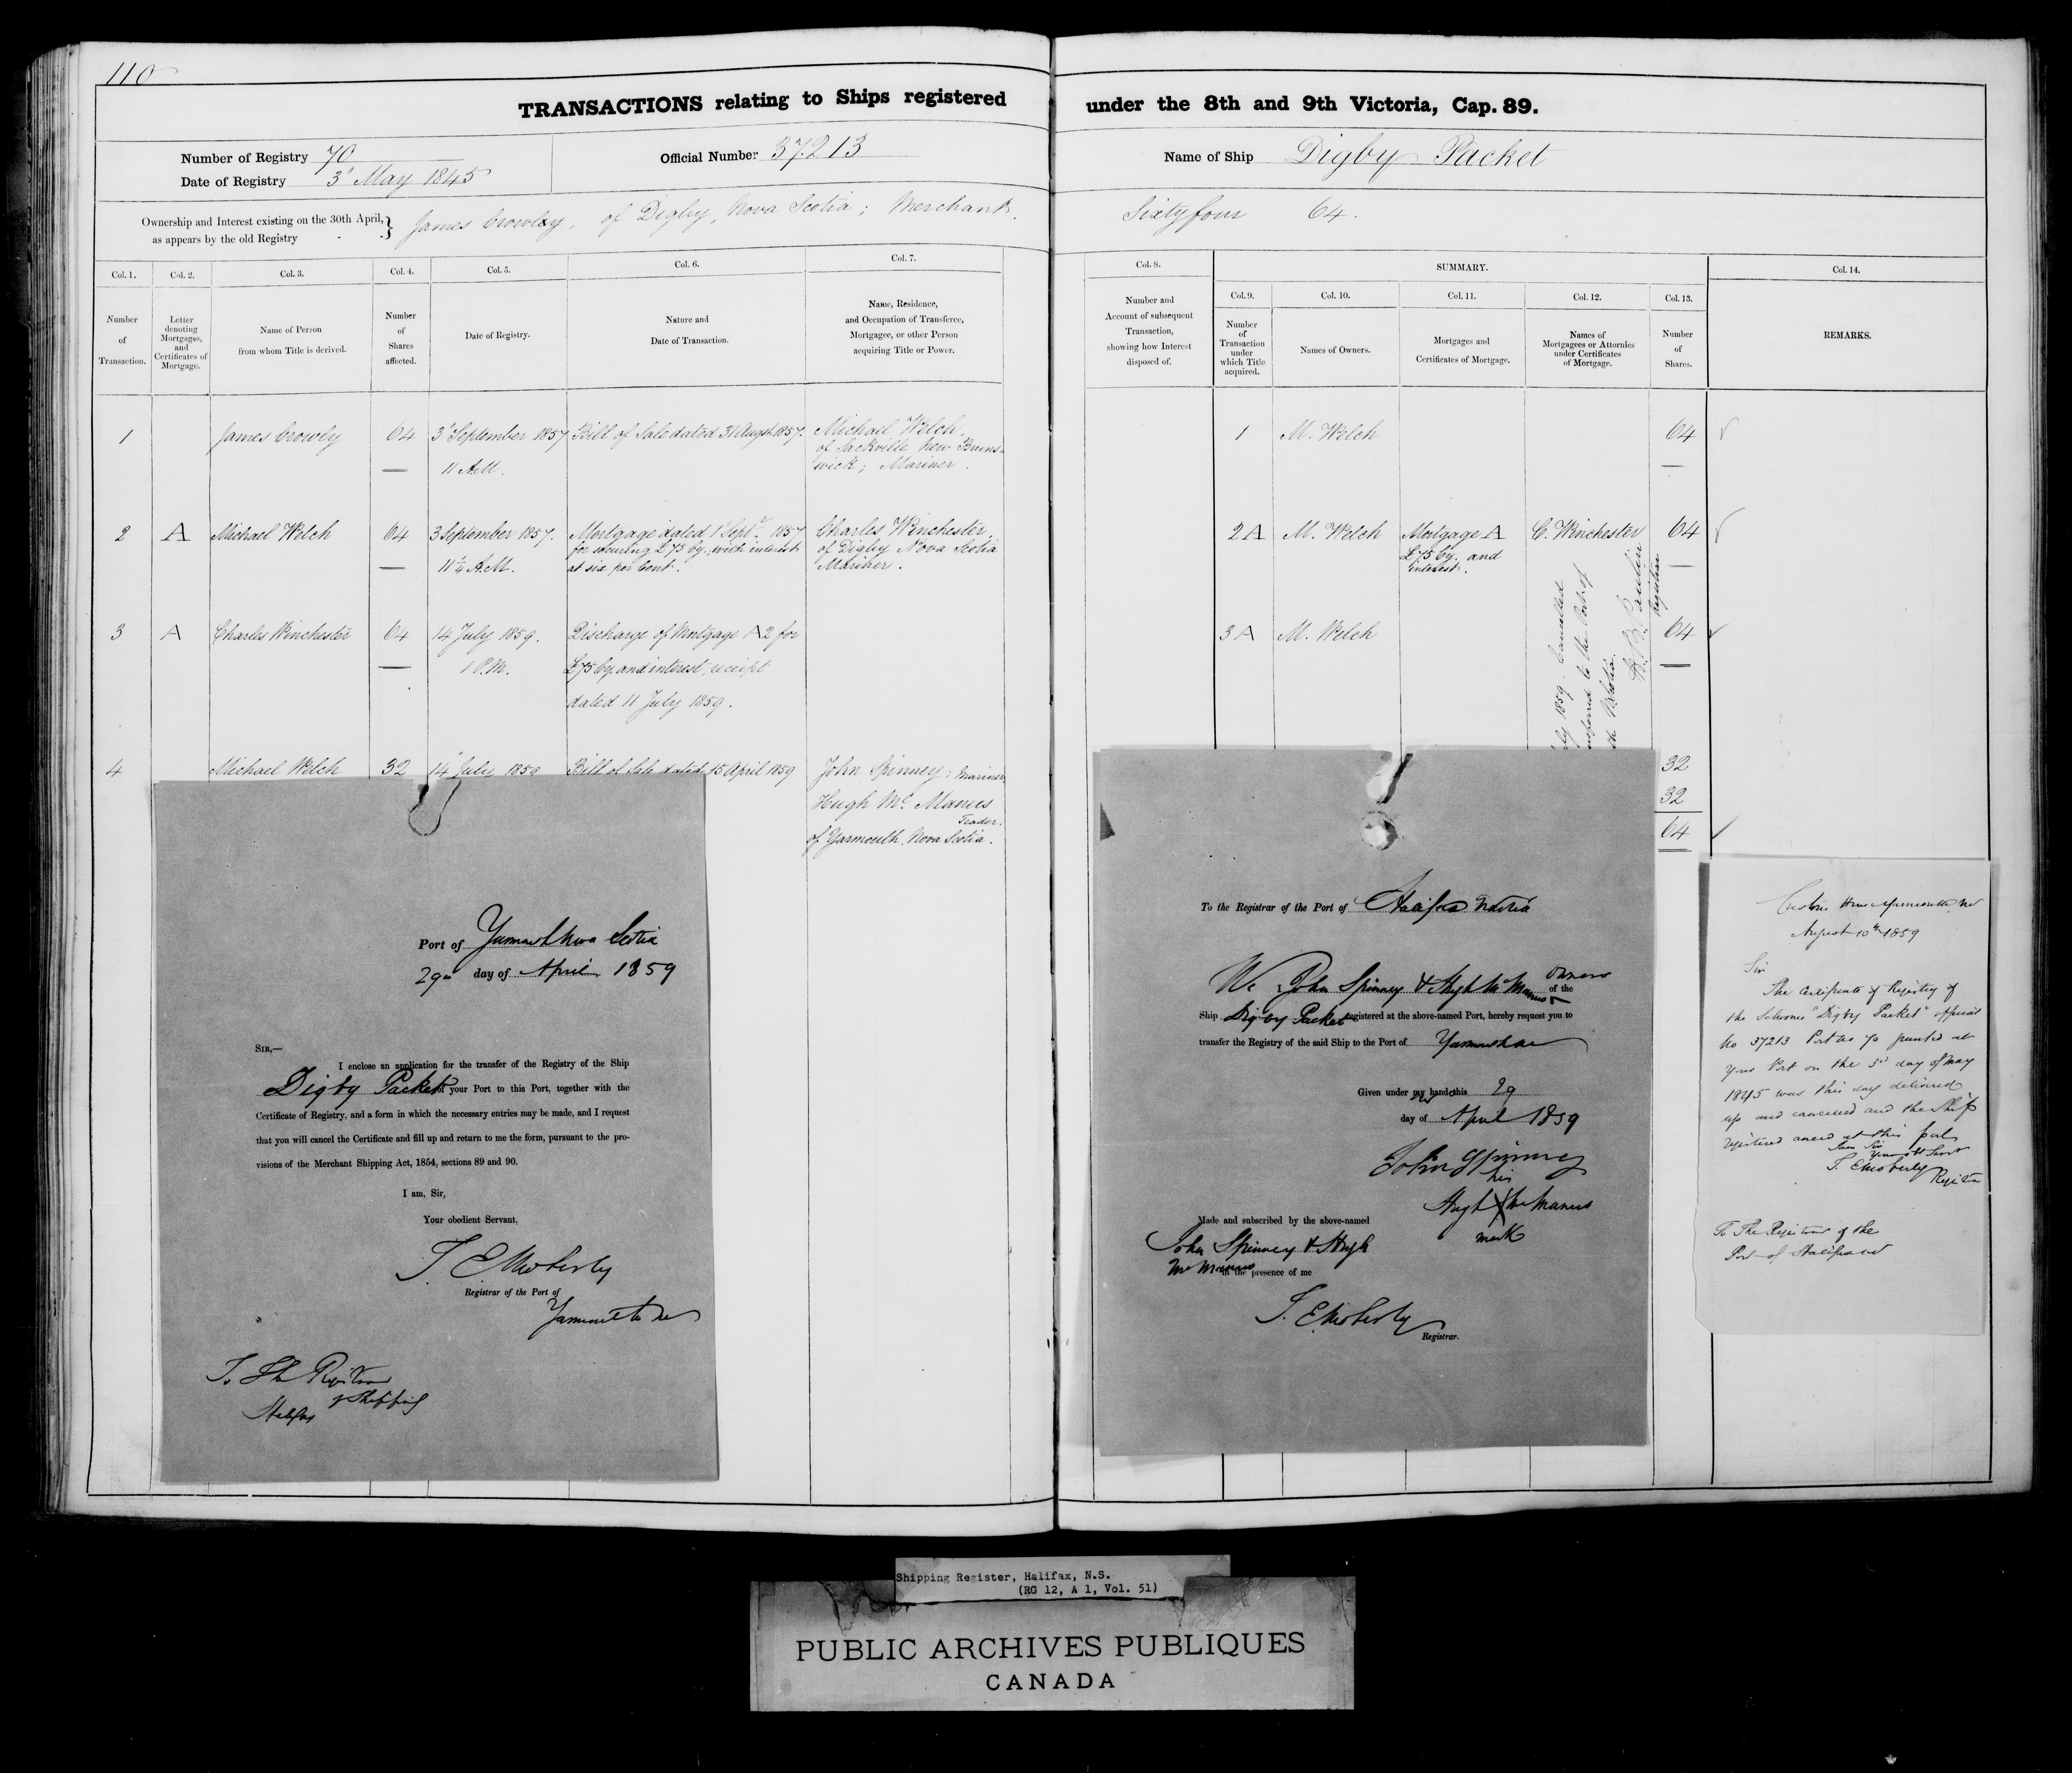 110
TRANSACTIONS relating to Ships registered under the 8th and 9th Victoria, Cap. 89.
Number of Registry 70
Date of Registry 3d May 1845
Official Number 37213
Name of Ship Digby Packet
Ownership and Interest existing on the 30th April, as appears by the old Registry } James Crowley, of Digby, Nova Scotia; Merchant. Sixty four 64.
Col. 1. Col. 2. Col. 3. Col. 4. Col. 5. Col. 6. Col. 7.
Number of Transaction.
Letter denoting Mortgages, and Certificates of Mortgage.
Name of Person from whom Title is derived.
Number of Shares affected.
Date of Registry.
Nature and Date of Transaction.
Name, Residence, and Occupation of Transferee, Mortgagee, or other Person acquiring Title or Power.
1 James Crowly 64 3d September 1857 11 A.M. Bill of Sale dated 31 Augst 1857. Michael Welch, of Sackville New Brunswick; Mariner.
2 A Michael Welch 64 3 September 1857. 11¼ A.M. Mortgage dated 1 Sept. 1857 for securing £75 Cy. with interest at six per Cent. Charles Winchester, of Digby Nova Scotia Mariner.
3 A Charles Winchester 64 14 July 1859. 1 P.M. Discharge of Mortgage A2 for £75 Cy. and interest, receipt dated 11 July 1859.
4 Michael Welch 32 14 July 1859 Bill of Sale dated 15 April 1859 John Spinney; Mariner,
Hugh Mc. Manus
Trader.
of Yarmouth. Nova Scotia.
Port of Yarmouth Nova Scotia
29th day of April 1859
SIR,—
I enclose an application for the transfer of the Registry of the Ship
Digby Packet of your Port to this Port, together with the
Certificate of Registry, and a form in which the necessary entries may be made, and I request
that you will cancel the Certificate and fill up and return to me the form, pursuant to the pro-
visions of the Merchant Shipping Act, 1854, sections 89 and 90.
I am, Sir,
Your obedient Servant,
T. E Moberly
Registrar of the Port of
Yarmouth
To The Registrar
of Shipping
Halifax
Col. 8. SUMMARY. Col. 14.
Col. 9. Col. 10. Col. 11. Col. 12. Col. 13.
Number and Account of subsequent Transaction, showing how Interest disposed of.
Number of Transaction under which Title acquired.
Names of Owners.
Mortgages and Certificates of Mortgage.
Names of Mortgagees or Attornies under Certificates of Mortgage.
Number of Shares.
REMARKS.
1 M. Welch 64
2 A M. Welch Mortgage A £75 Cy. and interest. C. Winchester 64
3 A M. Welch 64
1859. Cancelled
to the Port of
Registrar
32
32
64
To the Registrar of the Port of Halifax
We John Spinney & Hugh Mc Manus owners of the
Ship Digby Packet registered at the above-named Port, hereby request you to
transfer the Registry of the said Ship to the Port of Yarmouth
Given under my hand this 29
day of April 1859
John Spinney
his
Hugh X Mc Manus
mark
Made and subscribed by the above-named
John Spinney & Hugh
Mc Manus
in the presence of me
T. E Moberly
Registrar.
Custom House Yarmouth NS
August 10th 1859
Sir
The Certificate of Registry of
the Schooner "Digby Packet" official
No 37213 Port No 70 granted at
your Port on the 3rd day of May
1845 was this day delivered
up and cancelled and the Ship
registered anew at this port
I am Sir
Your obt Servt
T. E Moberly
Registrar
To The Registrar of the
Port of Halifax NS
Shipping Register, Halifax, N.S.
(RG 12, A 1, Vol. 51)
PUBLIC ARCHIVES PUBLIQUES
CANADA